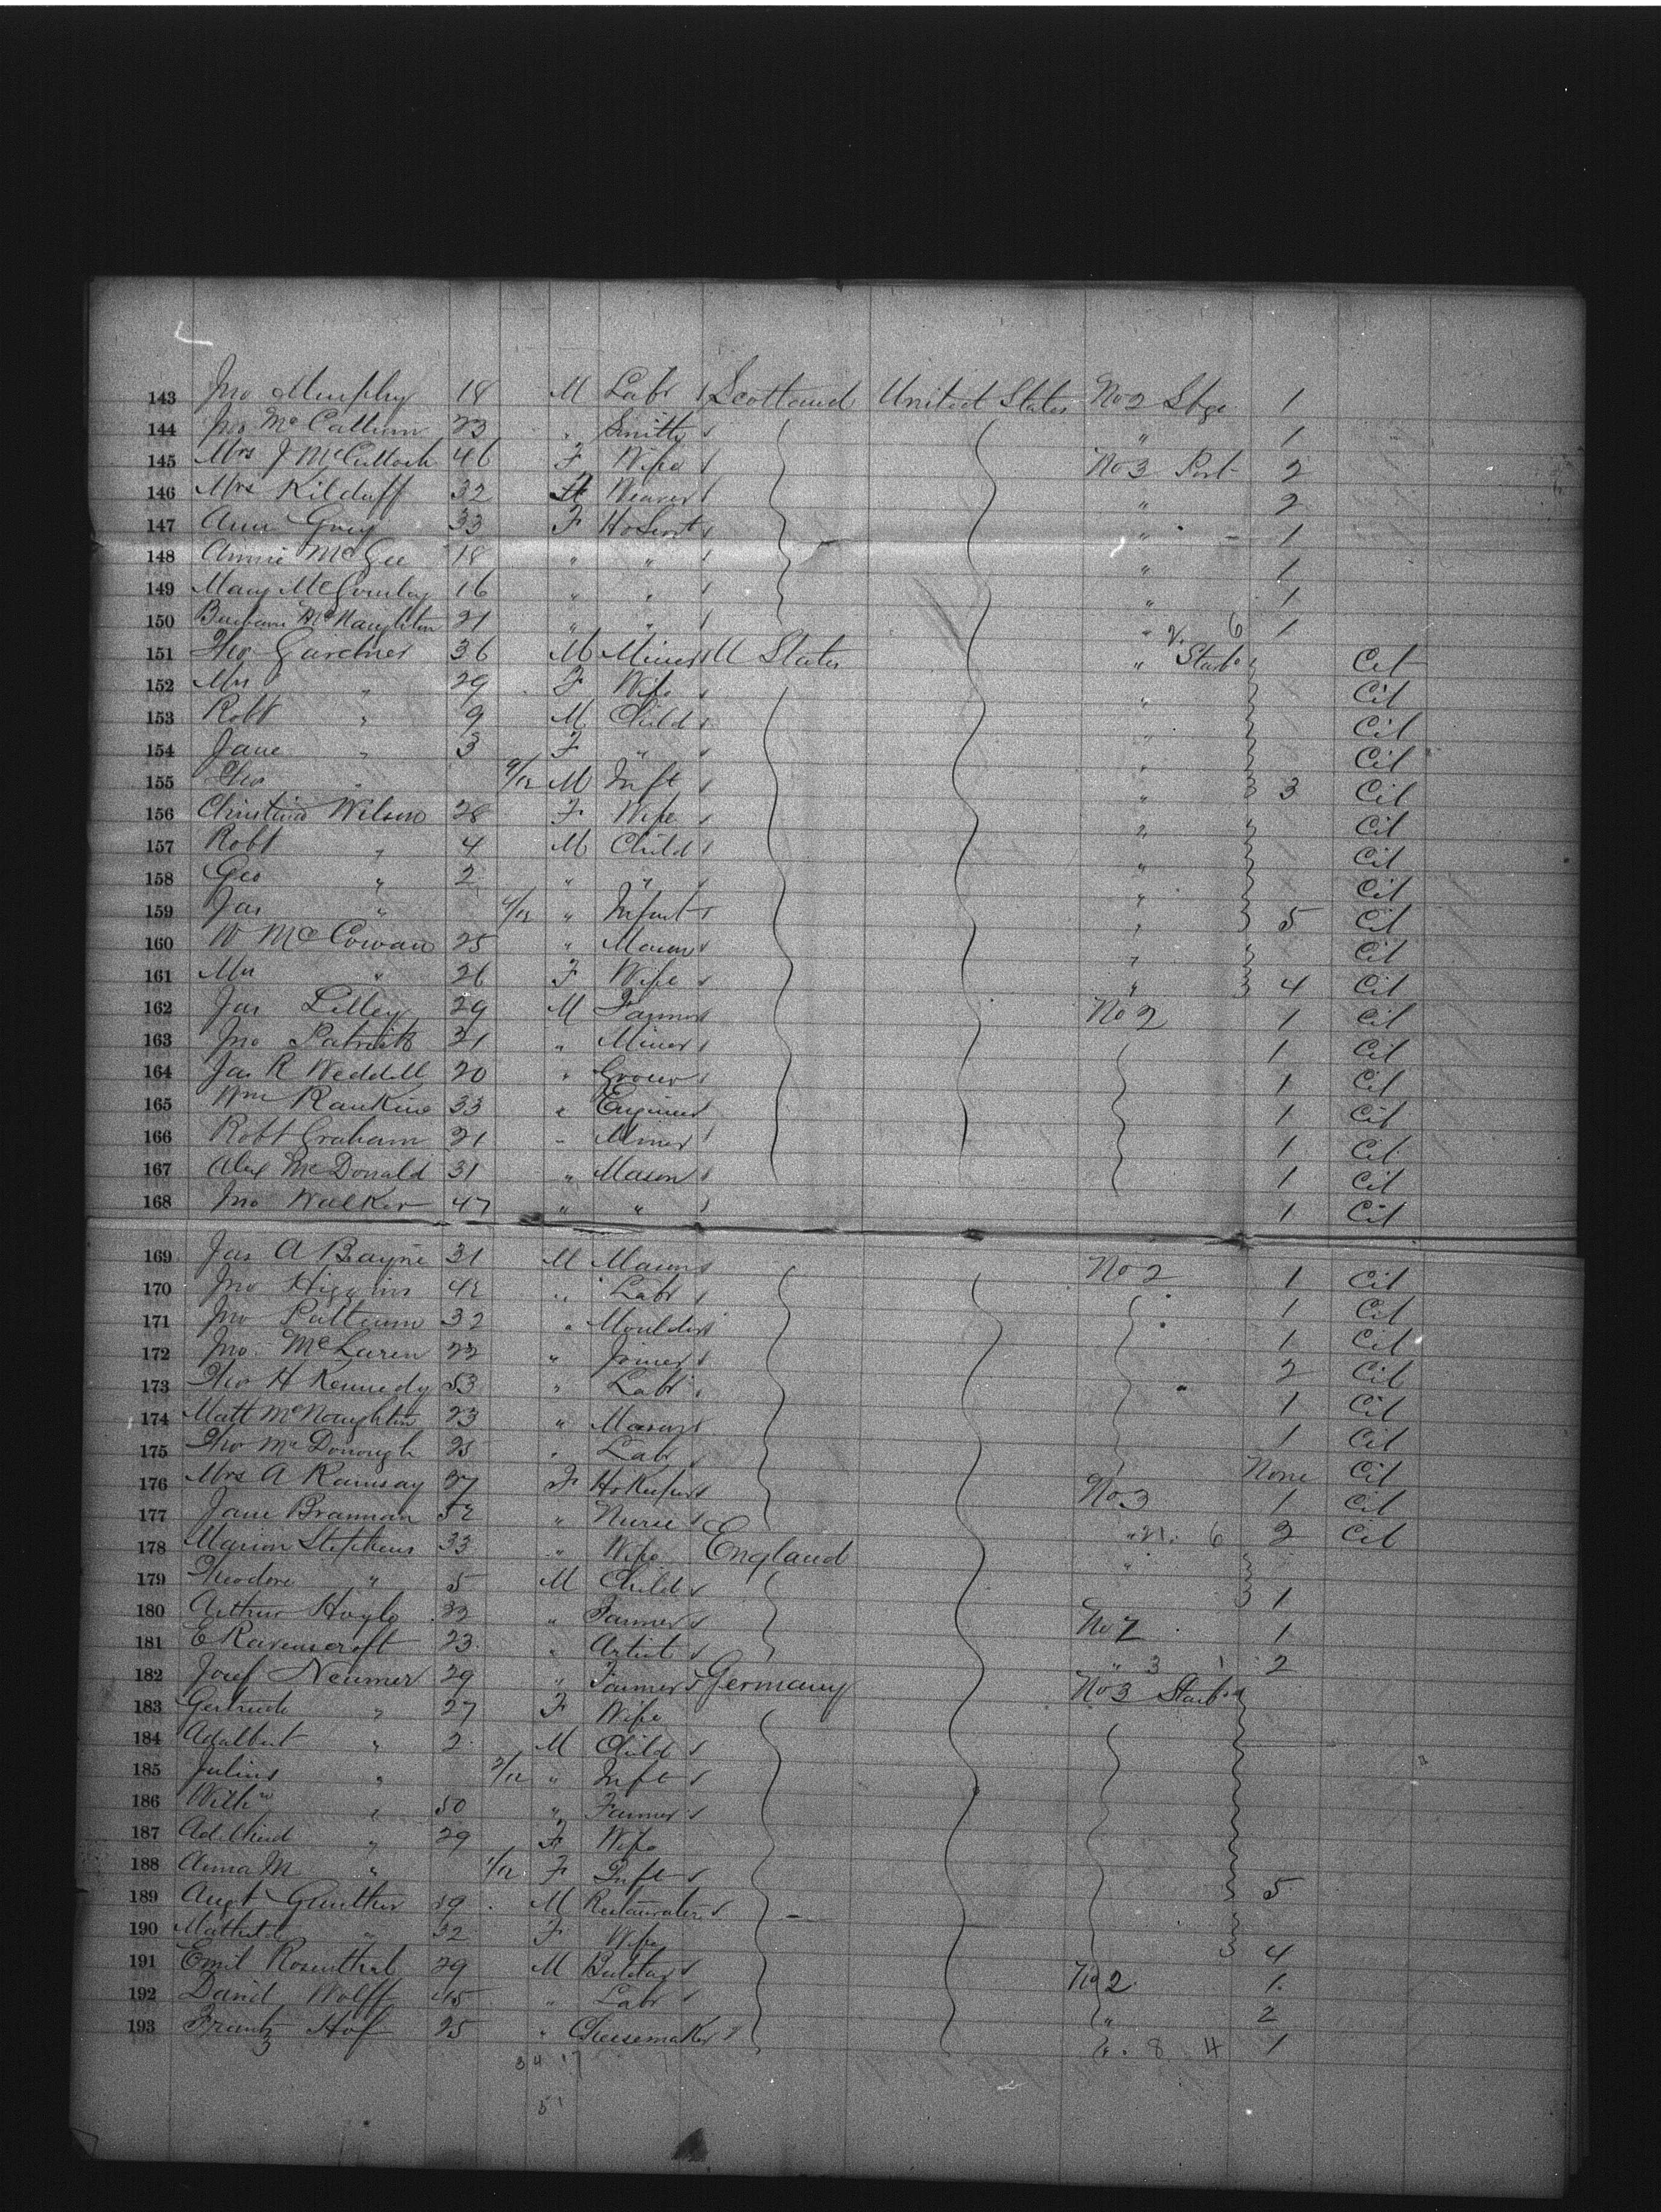 143 Jno Murphy 18 M Labr Scotland United States No 2 Stge 1
144 Jno McCallum 23 " Smith " 1
145 Mrs J McCulloch 46 F Wife No 3 Port 2
146 Mrs Kilduff 32 F Weaver " 2
147 Ann Grey 33 F HoServt " 1
148 Annie McGee 18 " " " 1
149 Mary McGourley 16 " " " 1
150 Barbara McNaughton 21 " " " 6 1
151 Thos Gardner 36 M Miner U States " Starb Cit
152 Mrs " 29 F Wife " Cit
153 Robt " 9 M Child " Cit
154 Jane " 3 F " " Cit
155 Thos " 9/12 M Inft " 3 Cit
156 Christina Wilson 28 F Wife " Cit
157 Robt " 4 M Child " Cit
158 Geo " 2 " " " Cit
159 Jas " 4/12 " Infant " 5 Cit
160 W McCowan 25 " Mason " Cit
161 Mrs " 26 F Wife " 4 Cit
162 Jas Lilley 29 M Farmer No 2 1 Cit
163 Jno Patrick 21 " Miner 1 Cit
164 Jas R Weddell 20 " Grocer 1 Cit
165 Wm Rankine 33 " Engineer 1 Cit
166 Robt Graham 21 " Miner 1 Cit
167 Alex McDonald 31 " Mason 1 Cit
168 Jno Walker 47 " " 1 Cit
169 Jas A Bayne 31 M Mason No 2 1 Cit
170 Jno Higgins 42 " Labr 1 Cit
171 Jno 32 " Moulder 1 Cit
172 Jno McLaren 22 " Joiner 2 Cit
173 Thos H Kennedy 53 " Labr 1 Cit
174 Matt McNaughton 23 " Mason 1 Cit
175 Thos McDonough 25 " Labr None Cit
176 Mrs A Ramsay 37 F HoKeeper No 3 1 Cit
177 Jane Brannan 52 " Nurse " 21 6 2 Cit
178 Marion Stephens 33 " Wife England "
179 Theodore " 5 M Child 1
180 Arthur Hoyle 32 " Farmer No 2 1
181 E Ravenscroft 23 " Artist " 3 1 2
182 Josef Neumer 29 " Farmer Germany No 3 Starb
183 Gertrude " 27 F Wife
184 Adalbert " 2 M Child
185 Julius " 2/12 " Inft
186 Wilhm " 50 " Farmer
187 Adelheid " 29 F Wife
188 Anna M " 1/12 F Inft 5
189 Augt Gunther 39 M Restaurater
190 Mathilde " 32 F Wife 4
191 Emil Rosenthal 29 M No 2 1
192 David Wolff 45 " Labr " 2
193 Frantz Hof 25 " Cheesemaker " 8 4 1
34 17
51